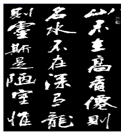 山不在高有僊則
名水不在深有龍
則靈斯是陋室惟